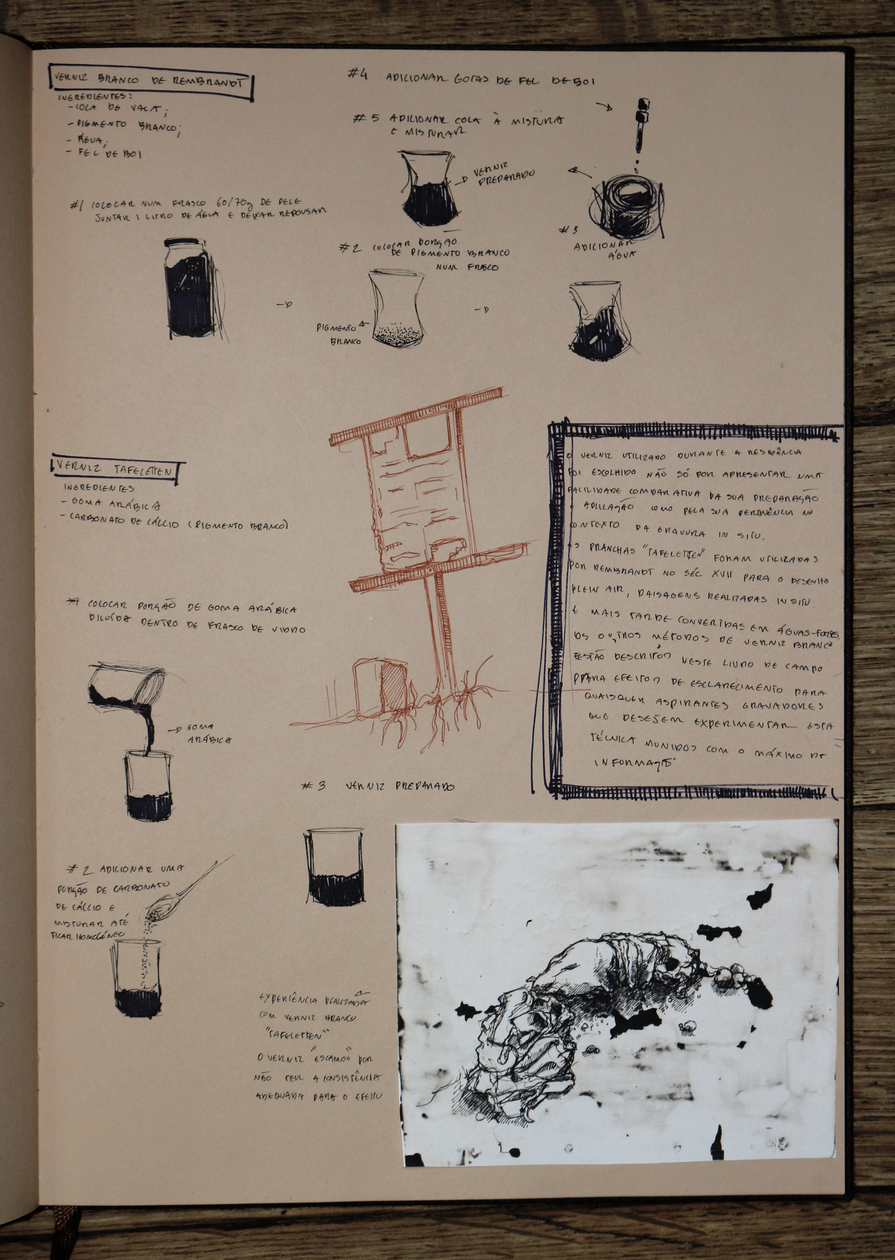 VERNIZ BRANCO DE REMBRANDT
INGREDIENTES:
- COLA DE VACA;
- PIGMENTO BRANCO;
- ÁGUA;
- FEL DE BOI
#1 COLOCAR NUM FRASCO 60/70g DE PELE
JUNTAR 1 LITRO DE ÁGUA E DEIXAR REPOUSAR
#2 COLOCAR PORÇÃO
DE PIGMENTO BRANCO
NUM FRASCO
PIGMENTO
BRANCO
#3
ADICIONAR
ÁGUA
#4 ADICIONAR GOTAS DE FEL DE BOI
#5 ADICIONAR COLA À MISTURA
E MISTURAR
VERNIZ
PREPARADO
VERNIZ TAFELETTEN
INGREDIENTES
- GOMA ARÁBICA
- CARBONATO DE CÁLCIO (PIGMENTO BRANCO)
#1 COLOCAR PORÇÃO DE GOMA ARÁBICA
DILUÍDA DENTRO DE FRASCO DE VIDRO
GOMA
ARÁBICA
#2 ADICIONAR UMA
PORÇÃO DE CARBONATO
DE CÁLCIO E
MISTURAR ATÉ
FICAR HOMOGÉNEO
#3 VERNIZ PREPARADO
O VERNIZ UTILIZADO DURANTE A RESIDÊNCIA
FOI ESCOLHIDO NÃO SÓ POR APRESENTAR UMA
FACILIDADE COMPARATIVA DA SUA PREPARAÇÃO
APLICAÇÃO COMO PELA SUA PERTINÊNCIA NO
CONTEXTO DA GRAVURA IN SITU.
AS PRANCHAS "TAFELETTEN" FORAM UTILIZADAS
POR REMBRANDT NO SÉC XVII PARA O DESENHO
PLEIN AIR, PAISAGENS REALIZADAS IN SITU
E MAIS TARDE CONVERTIDAS EM ÁGUAS-FORTES
OS OUTROS MÉTODOS DE VERNIZ BRANCO
ESTÃO DESCRITOS NESTE LIVRO DE CAMPO
PARA EFEITOS DE ESCLARECIMENTO PARA
QUAISQUER ASPIRANTES GRAVADORES
QUE DESEJEM EXPERIMENTAR ESTA
TÉCNICA MUNIDOS COM O MÁXIMO DE
INFORMAÇÃO
EXPERIÊNCIA REALIZADA
COM VERNIZ BRANCO
"TAFELETTEN"
O VERNIZ "ESCAMOU" POR
NÃO TER A CONSISTÊNCIA
ADEQUADA PARA O EFEITO